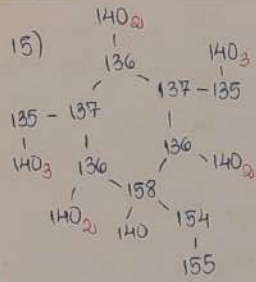 15)
140₂
136
140₃
137 - 135
135 - 137
136
140₃
136
140₂
140₂
158
140
154
155